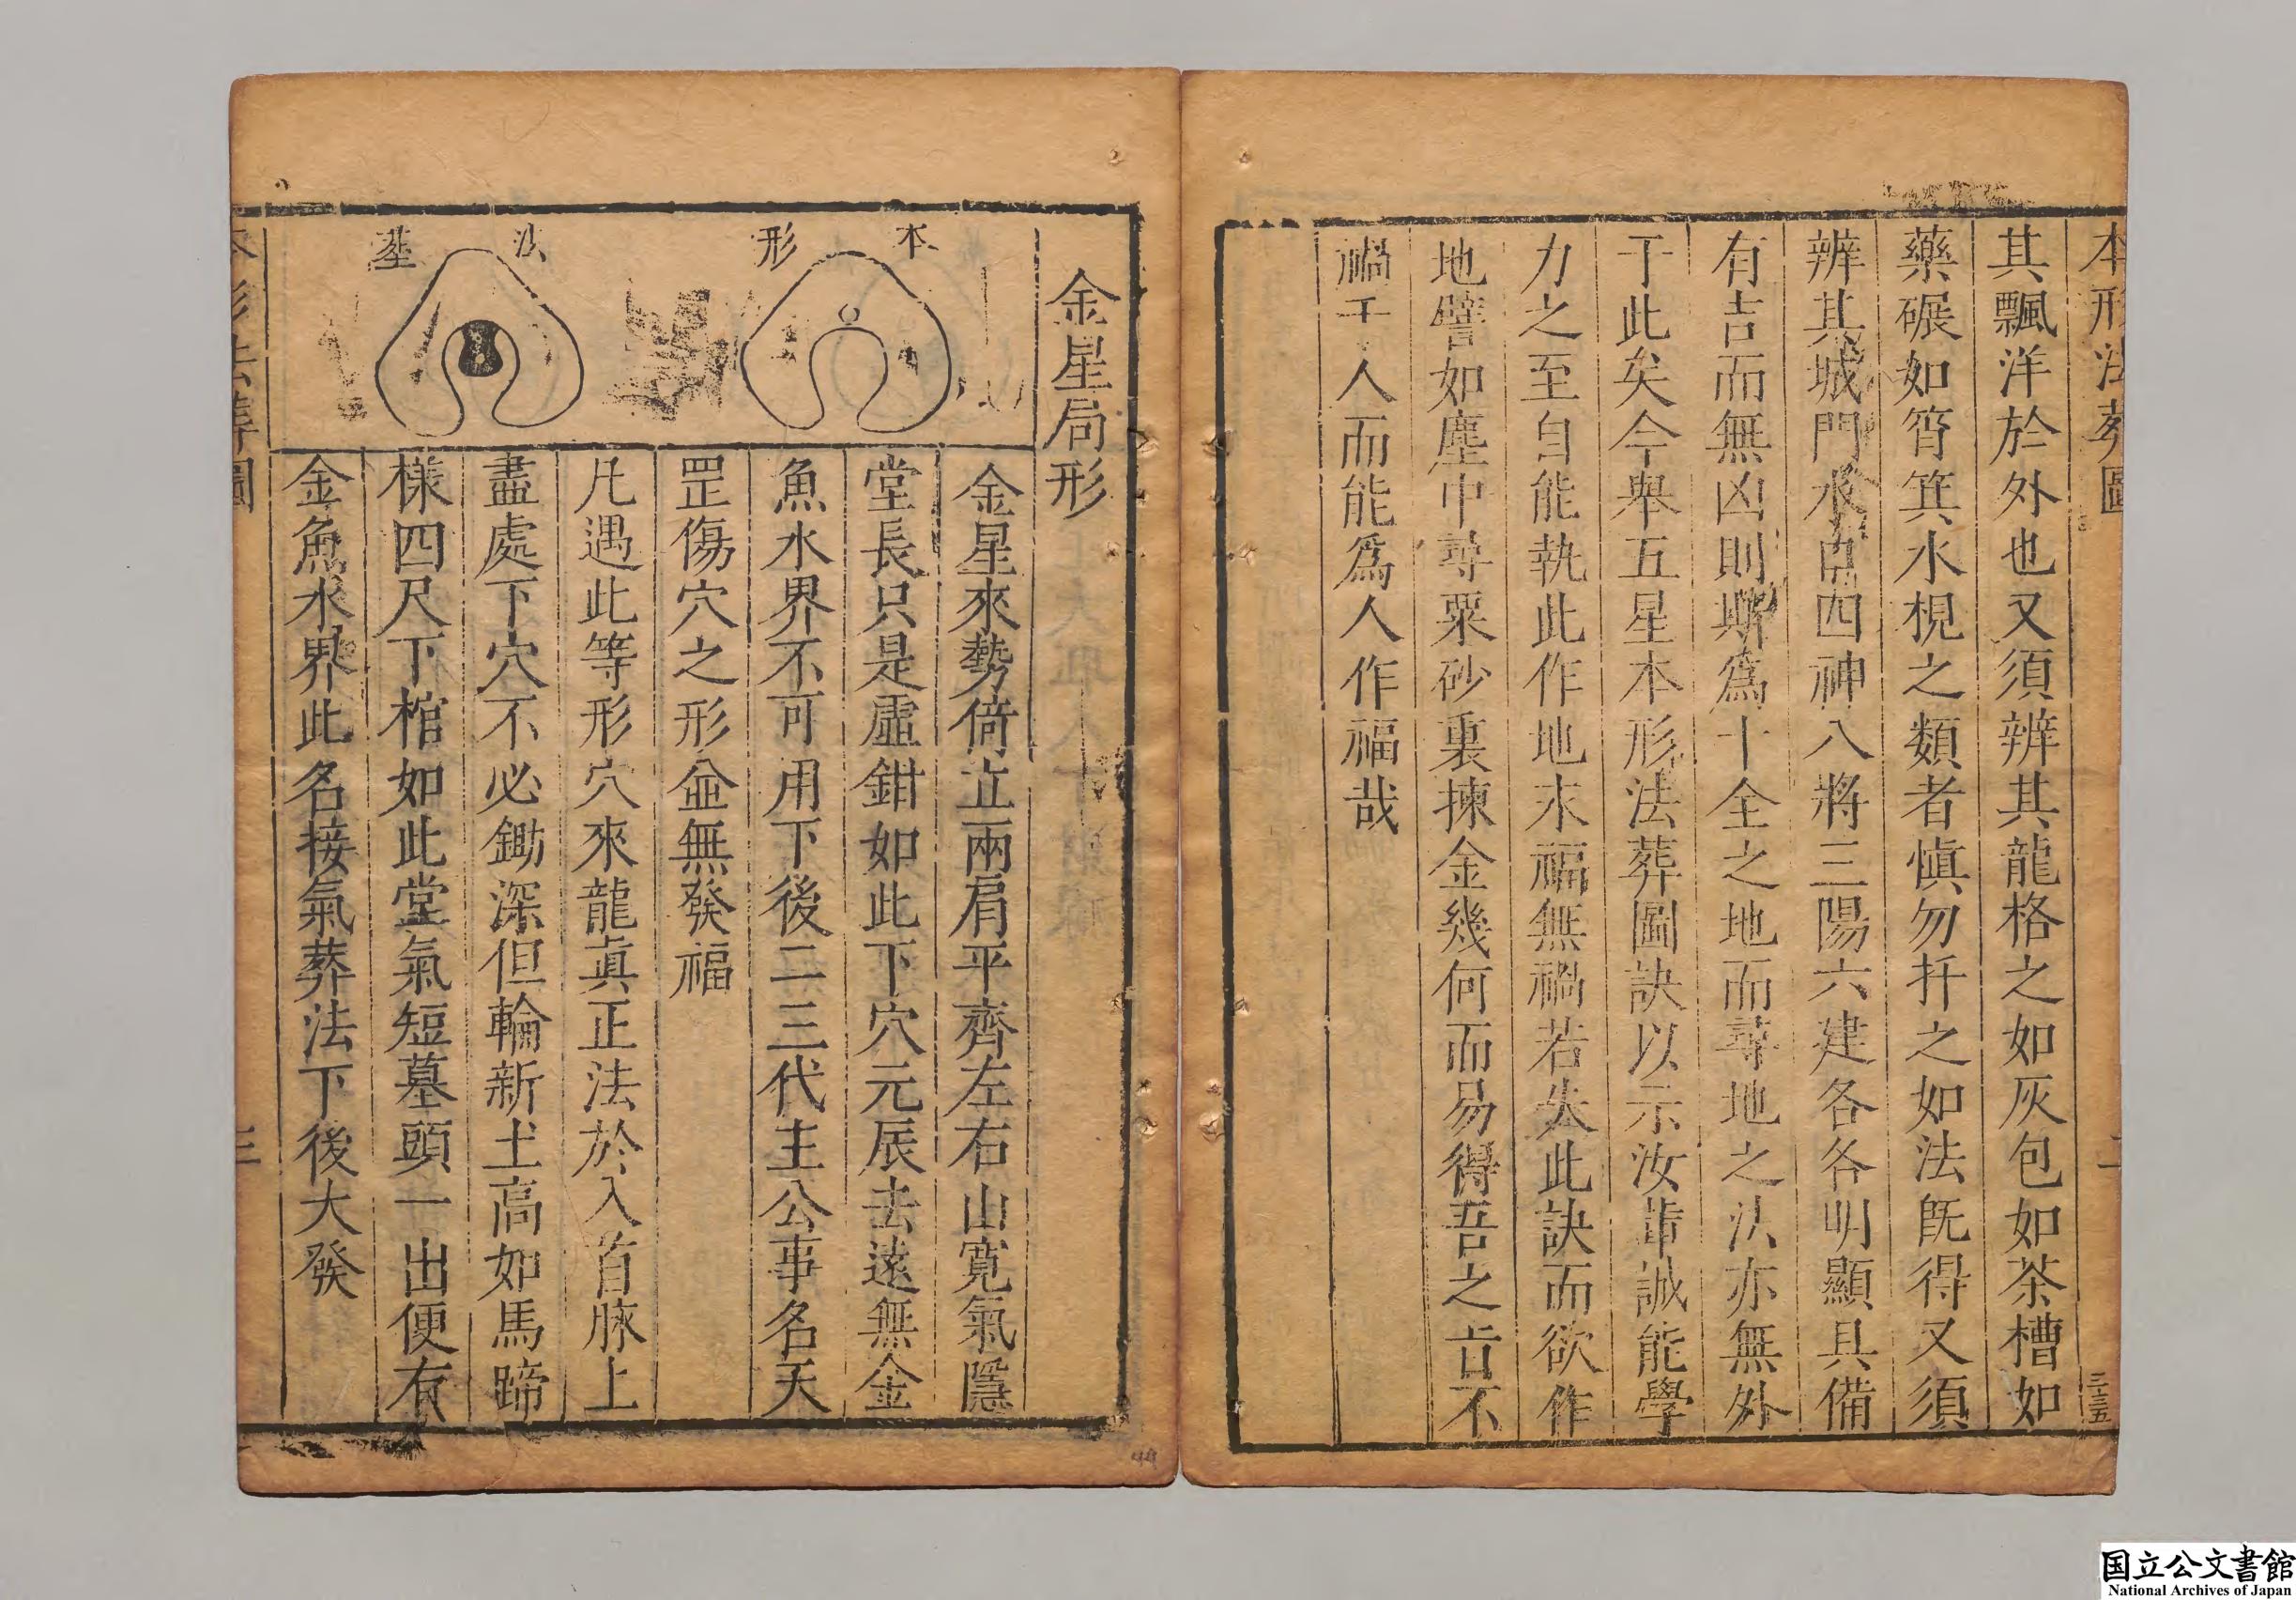 本形法葬圖
二
三十三五
其飄洋於外也又須辨其龍格之如灰包如茶槽如
藥碾如筲箕水梘之類者慎勿扦之如法既得又須
辨其城門水口四神八將三陽六建各各明顯具備
有吉而無凶則斯爲十全之地而尋地之法亦無外
于此矣今舉五星本形法葬圖訣以示汝曹誠能學
力之至自能執此作地末福無禍若失此訣而欲作
地譬如塵中尋粟砂裏揀金幾何而易得吾之言不
禍千人而能爲人作福哉
金星局形
本形
法塟
金星來勢倚立兩肩平齊左右山寬氣隱
堂長只是虛鉗如此下穴元辰去遠無金
魚水界不可用下後二三代主公事名天
罡傷穴之形並無發福
凡遇此等形穴來龍眞正法於入首脉上
盡處下穴不必鋤深但輪新土高如馬蹄
樣四尺下棺如此堂氣短墓頭一出便有
金魚水界此名接氣葬法下後大發
本形法葬圖
三
国立公文書館
National Archives of Japan